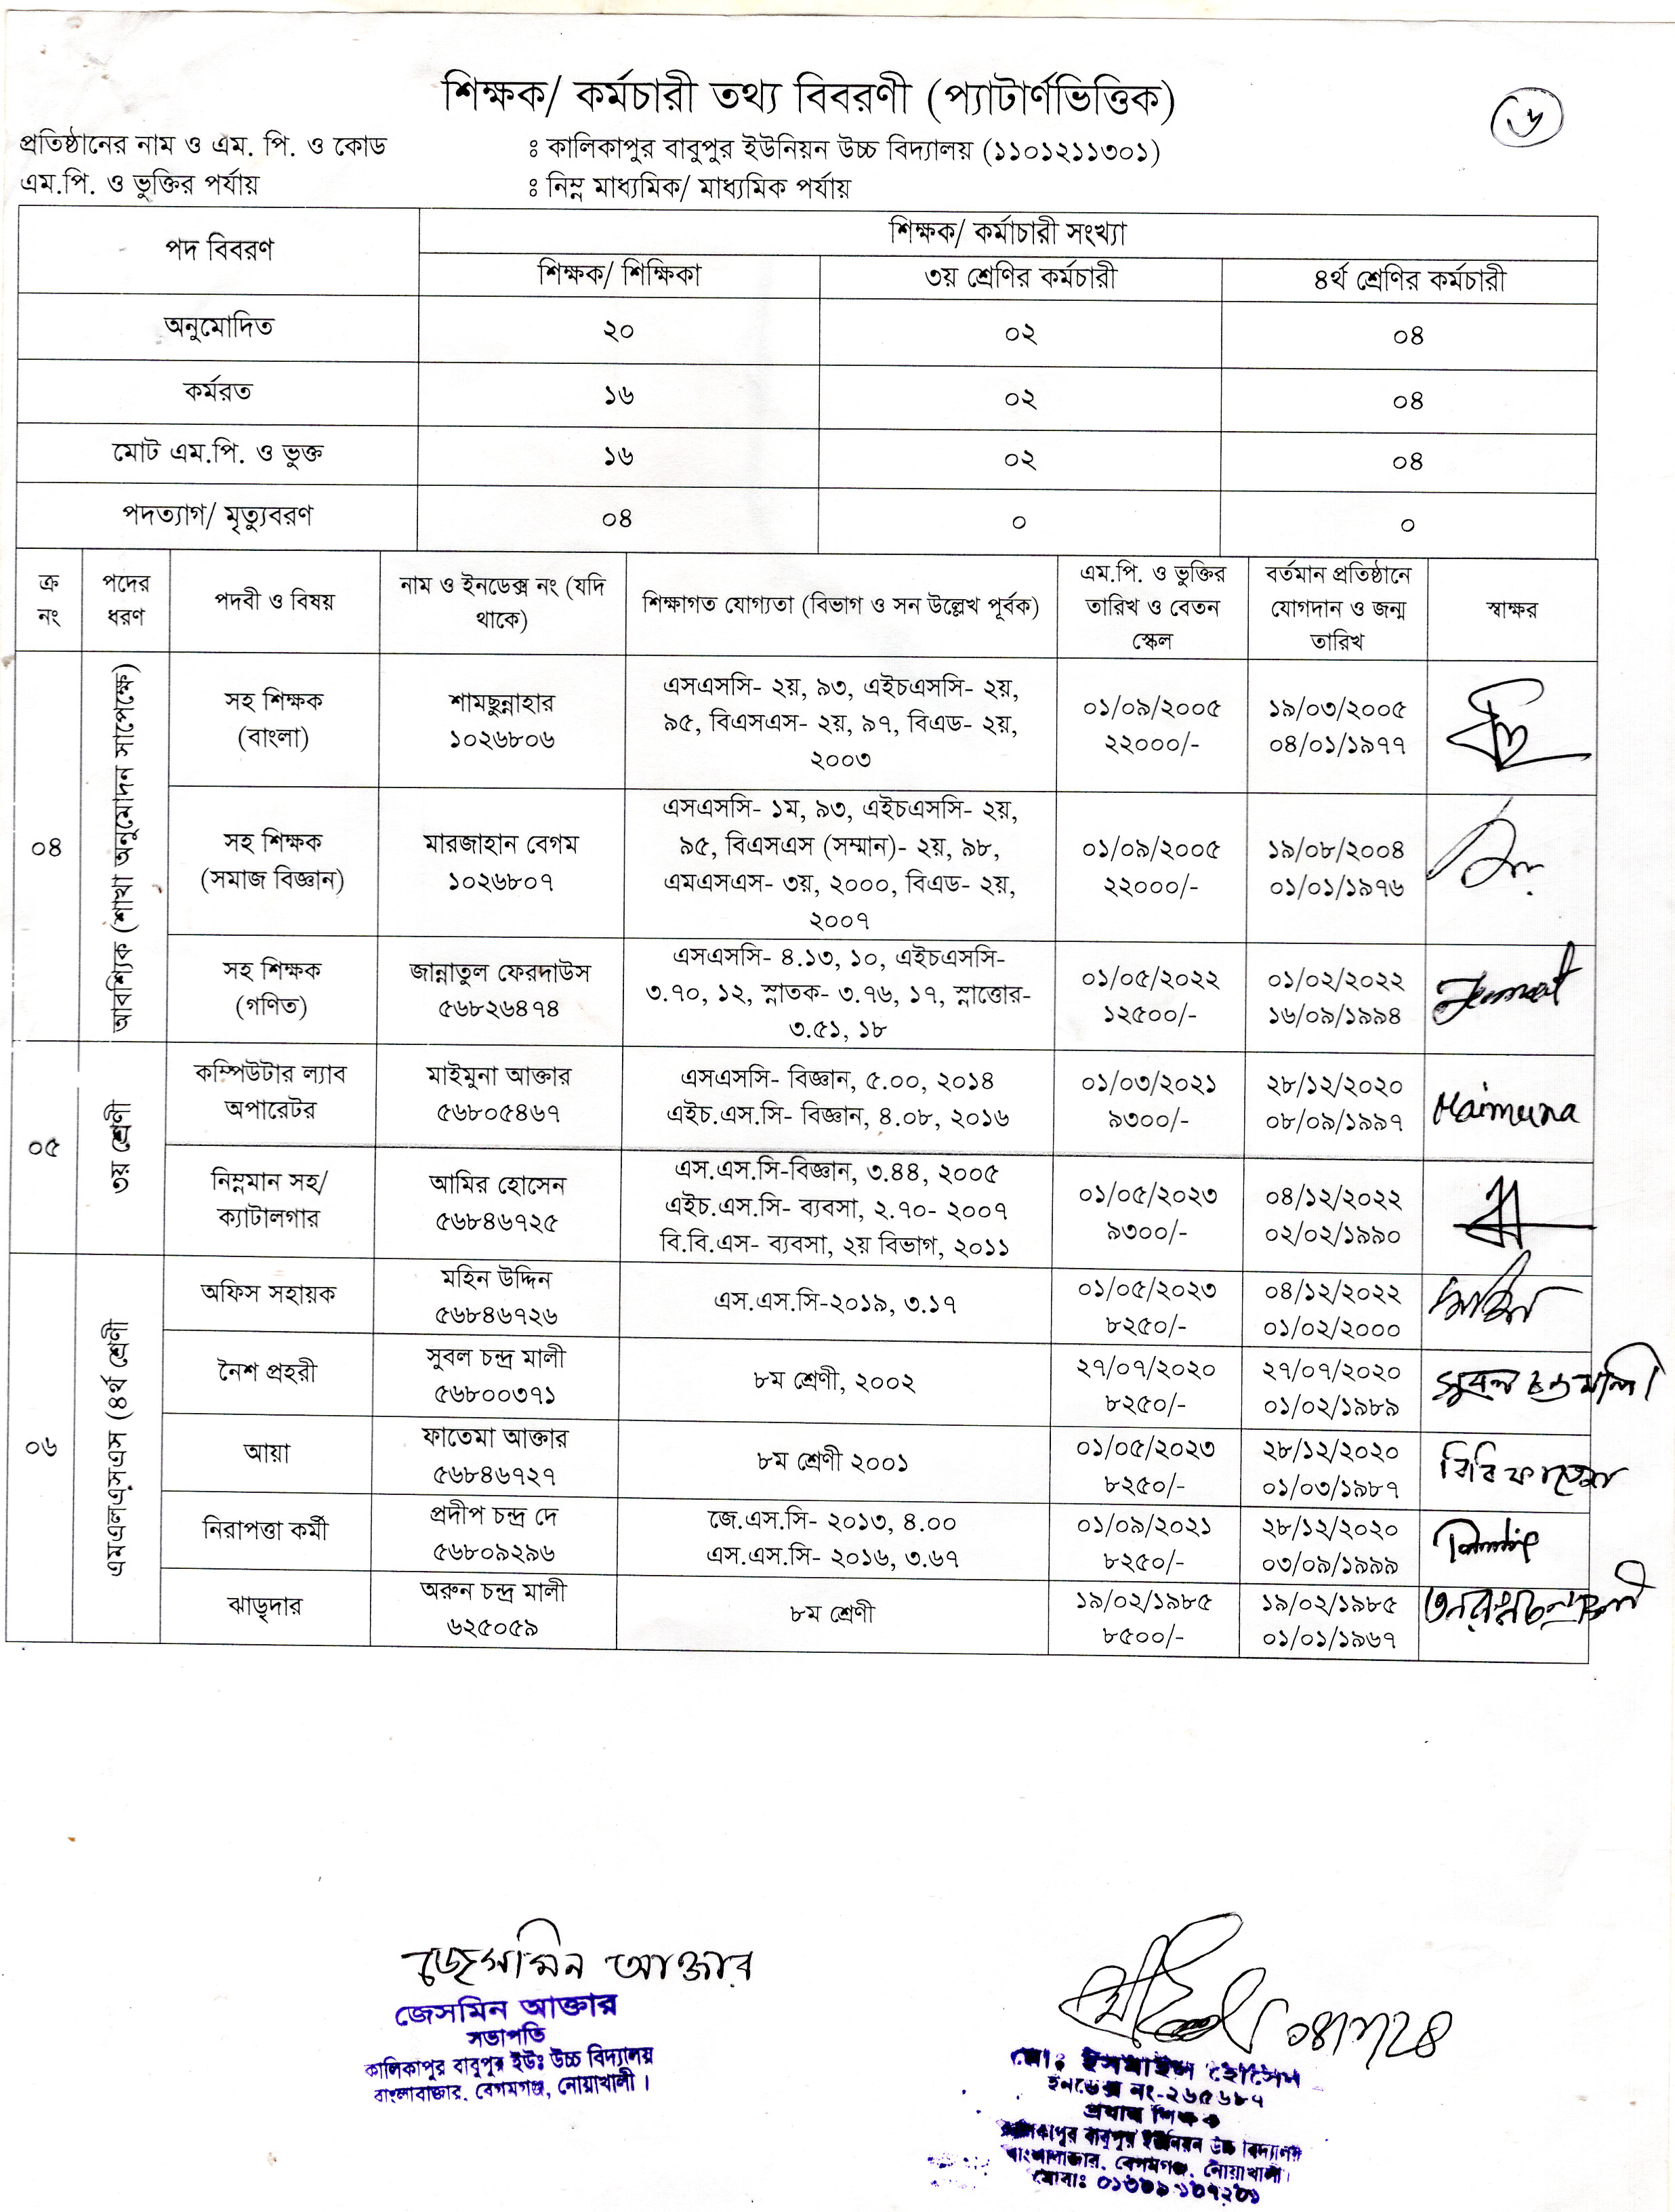 শিক্ষক/ কর্মচারী তথ্য বিবরণী (প্যাটার্ণভিত্তিক)
প্রতিষ্ঠানের নাম ও এম. পি. ও কোড : কালিকাপুর বাবুপুর ইউনিয়ন উচ্চ বিদ্যালয় (১১০১২১১৩০১)
এম.পি. ও ভুক্তির পর্যায় : নিম্ন মাধ্যমিক/ মাধ্যমিক পর্যায়
পদ বিবরণ
শিক্ষক/ কর্মাচারী সংখ্যা
শিক্ষক/ শিক্ষিকা ৩য় শ্রেণির কর্মচারী ৪র্থ শ্রেণির কর্মচারী
অনুমোদিত ২০ ০২ ০৪
কর্মরত ১৬ ০২ ০৪
মোট এম.পি. ও ভুক্ত ১৬ ০২ ০৪
পদত্যাগ/ মৃত্যুবরণ ০৪ ০ ০
ক্র
নং
পদের
ধরণ
পদবী ও বিষয়
নাম ও ইনডেক্স নং (যদি
থাকে)
শিক্ষাগত যোগ্যতা (বিভাগ ও সন উল্লেখ পূর্বক)
এম.পি. ও ভুক্তির
তারিখ ও বেতন
স্কেল
বর্তমান প্রতিষ্ঠানে
যোগদান ও জন্ম
তারিখ
স্বাক্ষর
০৪
আবশ্যিক (শাখা অনুমোদন সাপেক্ষে)
সহ শিক্ষক
(বাংলা)
শামছুন্নাহার
১০২৬৮০৬
এসএসসি- ২য়, ৯৩, এইচএসসি- ২য়,
৯৫, বিএসএস- ২য়, ৯৭, বিএড- ২য়,
২০০৩
০১/০৯/২০০৫
২২০০০/-
১৯/০৩/২০০৫
০৪/০১/১৯৭৭
সহ শিক্ষক
(সমাজ বিজ্ঞান)
মারজাহান বেগম
১০২৬৮০৭
এসএসসি- ১ম, ৯৩, এইচএসসি- ২য়,
৯৫, বিএসএস (সম্মান)- ২য়, ৯৮,
এমএসএস- ৩য়, ২০০০, বিএড- ২য়,
২০০৭
০১/০৯/২০০৫
২২০০০/-
১৯/০৮/২০০৪
০১/০১/১৯৭৬
সহ শিক্ষক
(গণিত)
জান্নাতুল ফেরদাউস
৫৬৮২৬৪৭৪
এসএসসি- ৪.১৩, ১০, এইচএসসি-
৩.৭০, ১২, স্নাতক- ৩.৭৬, ১৭, স্নাত্তোর-
৩.৫১, ১৮
০১/০৫/২০২২
১২৫০০/-
০১/০২/২০২২
১৬/০৯/১৯৯৪
০৫
৩য় শ্রেণী
কম্পিউটার ল্যাব
অপারেটর
মাইমুনা আক্তার
৫৬৮০৫৪৬৭
এসএসসি- বিজ্ঞান, ৫.০০, ২০১৪
এইচ.এস.সি- বিজ্ঞান, ৪.০৮, ২০১৬
০১/০৩/২০২১
৯৩০০/-
২৮/১২/২০২০
০৮/০৯/১৯৯৭
Maimuna
নিম্নমান সহ/
ক্যাটালগার
আমির হোসেন
৫৬৮৪৬৭২৫
এস.এস.সি-বিজ্ঞান, ৩.৪৪, ২০০৫
এইচ.এস.সি- ব্যবসা, ২.৭০- ২০০৭
বি.বি.এস- ব্যবসা, ২য় বিভাগ, ২০১১
০১/০৫/২০২৩
৯৩০০/-
০৪/১২/২০২২
০২/০২/১৯৯০
০৬
এমএলএসএস (৪র্থ শ্রেণী
অফিস সহায়ক
মহিন উদ্দিন
৫৬৮৪৬৭২৬
এস.এস.সি-২০১৯, ৩.১৭
০১/০৫/২০২৩
৮২৫০/-
০৪/১২/২০২২
০১/০২/২০০০
নৈশ প্রহরী
সুবল চন্দ্র মালী
৫৬৮০০৩৭১
৮ম শ্রেণী, ২০০২
২৭/০৭/২০২০
৮২৫০/-
২৭/০৭/২০২০
০১/০২/১৯৮৯
সুবল চন্দ্র মালি
আয়া
ফাতেমা আক্তার
৫৬৮৪৬৭২৭
৮ম শ্রেণী ২০০১
০১/০৫/২০২৩
৮২৫০/-
২৮/১২/২০২০
০১/০৩/১৯৮৭
বিবি ফাতেমা
নিরাপত্তা কর্মী
প্রদীপ চন্দ্র দে
৫৬৮০৯২৯৬
জে.এস.সি- ২০১৩, ৪.০০
এস.এস.সি- ২০১৬, ৩.৬৭
০১/০৯/২০২১
৮২৫০/-
২৮/১২/২০২০
০৩/০৯/১৯৯৯
ঝাড়ুদার
অরুন চন্দ্র মালী
৬২৫০৫৯
৮ম শ্রেণী
১৯/০২/১৯৮৫
৮৫০০/-
১৯/০২/১৯৮৫
০১/০১/১৯৬৭
জেসমিন আক্তার
জেসমিন আক্তার
সভাপতি
কালিকাপুর বাবুপুর ইউঃ উচ্চ বিদ্যালয়
বাংলাবাজার, বেগমগঞ্জ, নোয়াখালী।
মো: ইসমাইল হোসেন
ইনডেক্স নং-২৬৫৬৮৭
প্রধান শিক্ষক
কালিকাপুর বাবুপুর ইউনিয়ন উচ্চ বিদ্যালয়
বাংলাবাজার, বেগমগঞ্জ, নোয়াখালী।
মোবাঃ